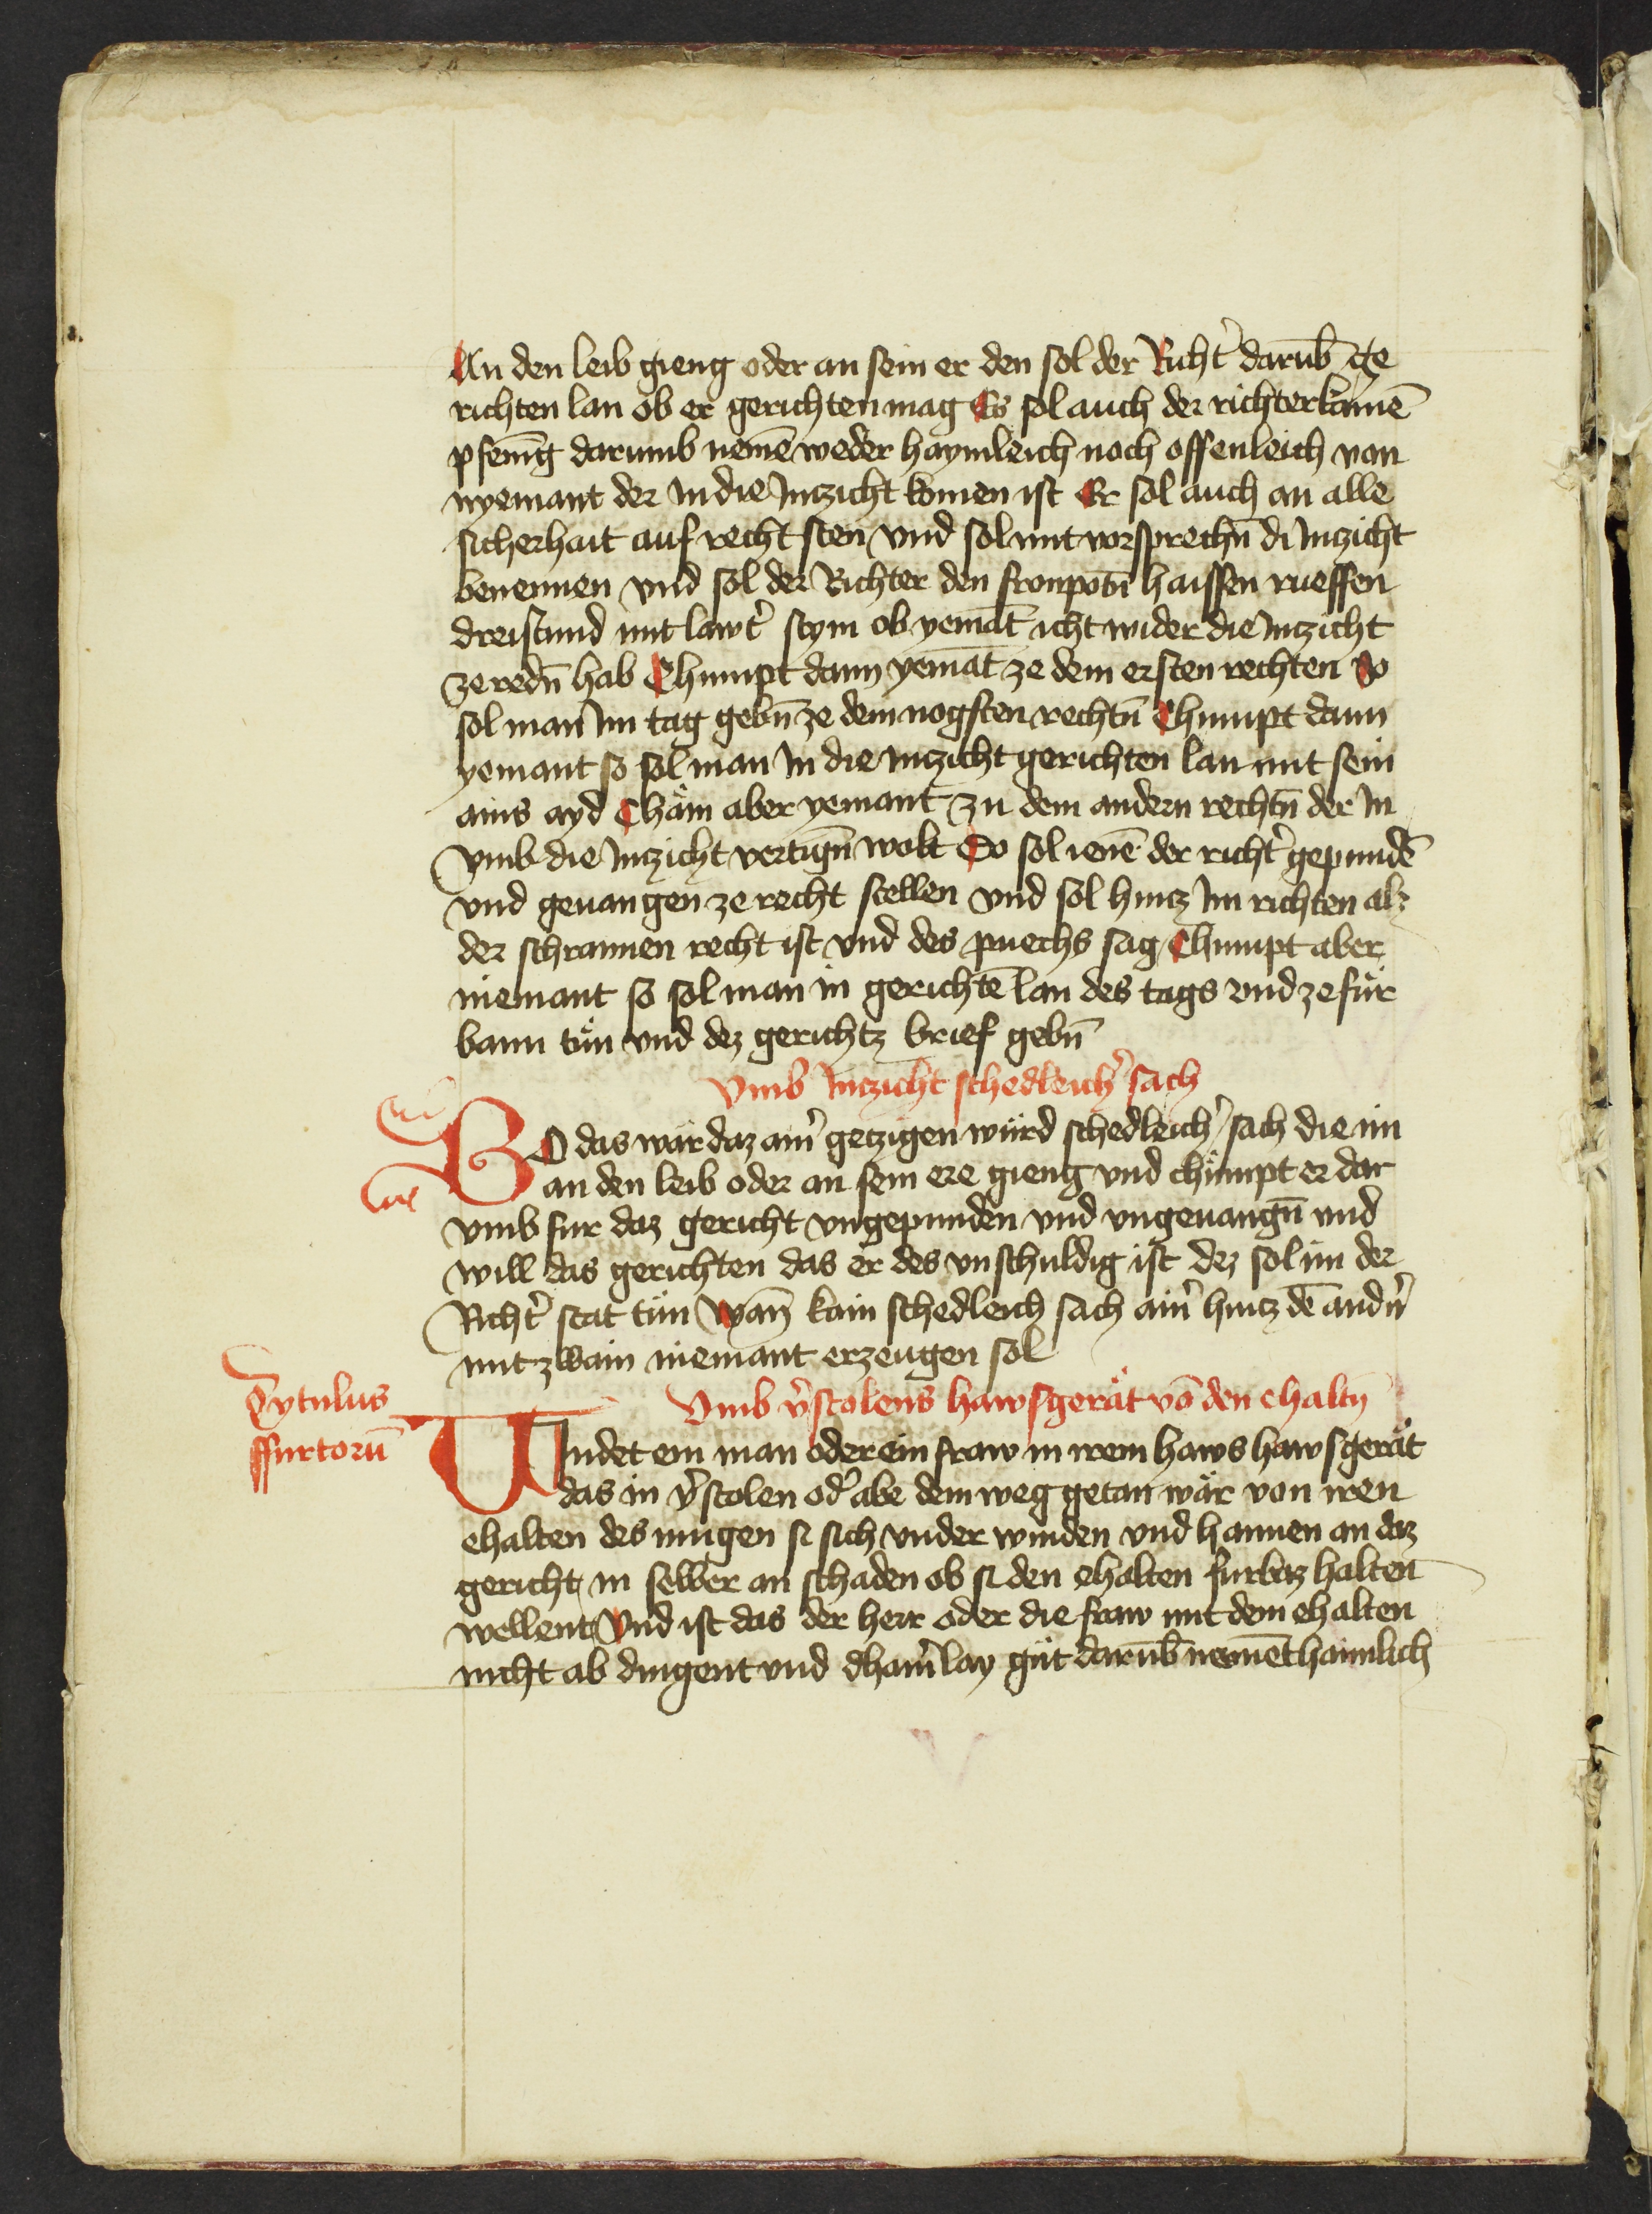 An den leib gieng oder an sein er den sol der Richt̉ darūb ge
richten lan ob er gerichten mag Es sol auch der richter kainē
pfenīg darumb nemē weder haymleich noch offenleich von
nyemant der In die Inczicht komen ist Er sol auch an alle
sicherhait auf recht sten vnd sol mit vorsprechn̄ di Inczicht
benennen vnd sol der Richter den fronpotn̄ haissen rueffen
dreistund mit lawt̉ stym ob yemāt icht wider die Inczicht
ze redn̄ hab Chumpt dann yemāt ze dem ersten rechten So
sol man Im tag gebn̄ ze dem nogsten rechtn̄ Chumpt dann
yemant so sol man In die Inczicht gerichten lan mit sein
ains ayd Chäm aber yemant zu dem andern rechtn̄ der In
vmb die Inczicht vertign̄ wolt So sol ienē der richt̉ gepundē
vnd geuangen ze recht stellen vnd sol hincz Im richten alz
der schrannen recht ist vnd des puechs sag Chumpt aber
niemant so sol man in gerichtē lan des tags vnd ze für
bann tün vnd dez gerichtz brief gebn̄
Vmb Inczicht schedleich̉ sach
SO das wär daz ain̉ geczigen würd schedleich̉ sach die im
an den leib oder an sein ere gieng vnd chümpt er dar
vmb fur daz gericht vngepunden vnd vngeuangn̄ vnd
will das gerichten das er des vnschuldig ist dez sol im der
Richt̉ stat tün Wan̄ kain schedleich sach ain̉ hincz dē andn̉
mit zwain niemant erzeugen sol
Tytulus
ffurtorū
Vmb v̉stolens hawsgerät vō den ehaltn̄
Vindet ein man oder ein fraw in irem haws hawsgerät
das in v̉stolen od̉ abe dem weg getan wär von iren
ehalten des mugen si sich vnder winden vnd hannen an daz
gericht in selber an schaden ob si den ehalten furbaz halten
wellent Vnd ist das der herr oder die fraw mit dem ehalten
nicht ab dingent vnd dhain̉lay güt darūb nement haimlich